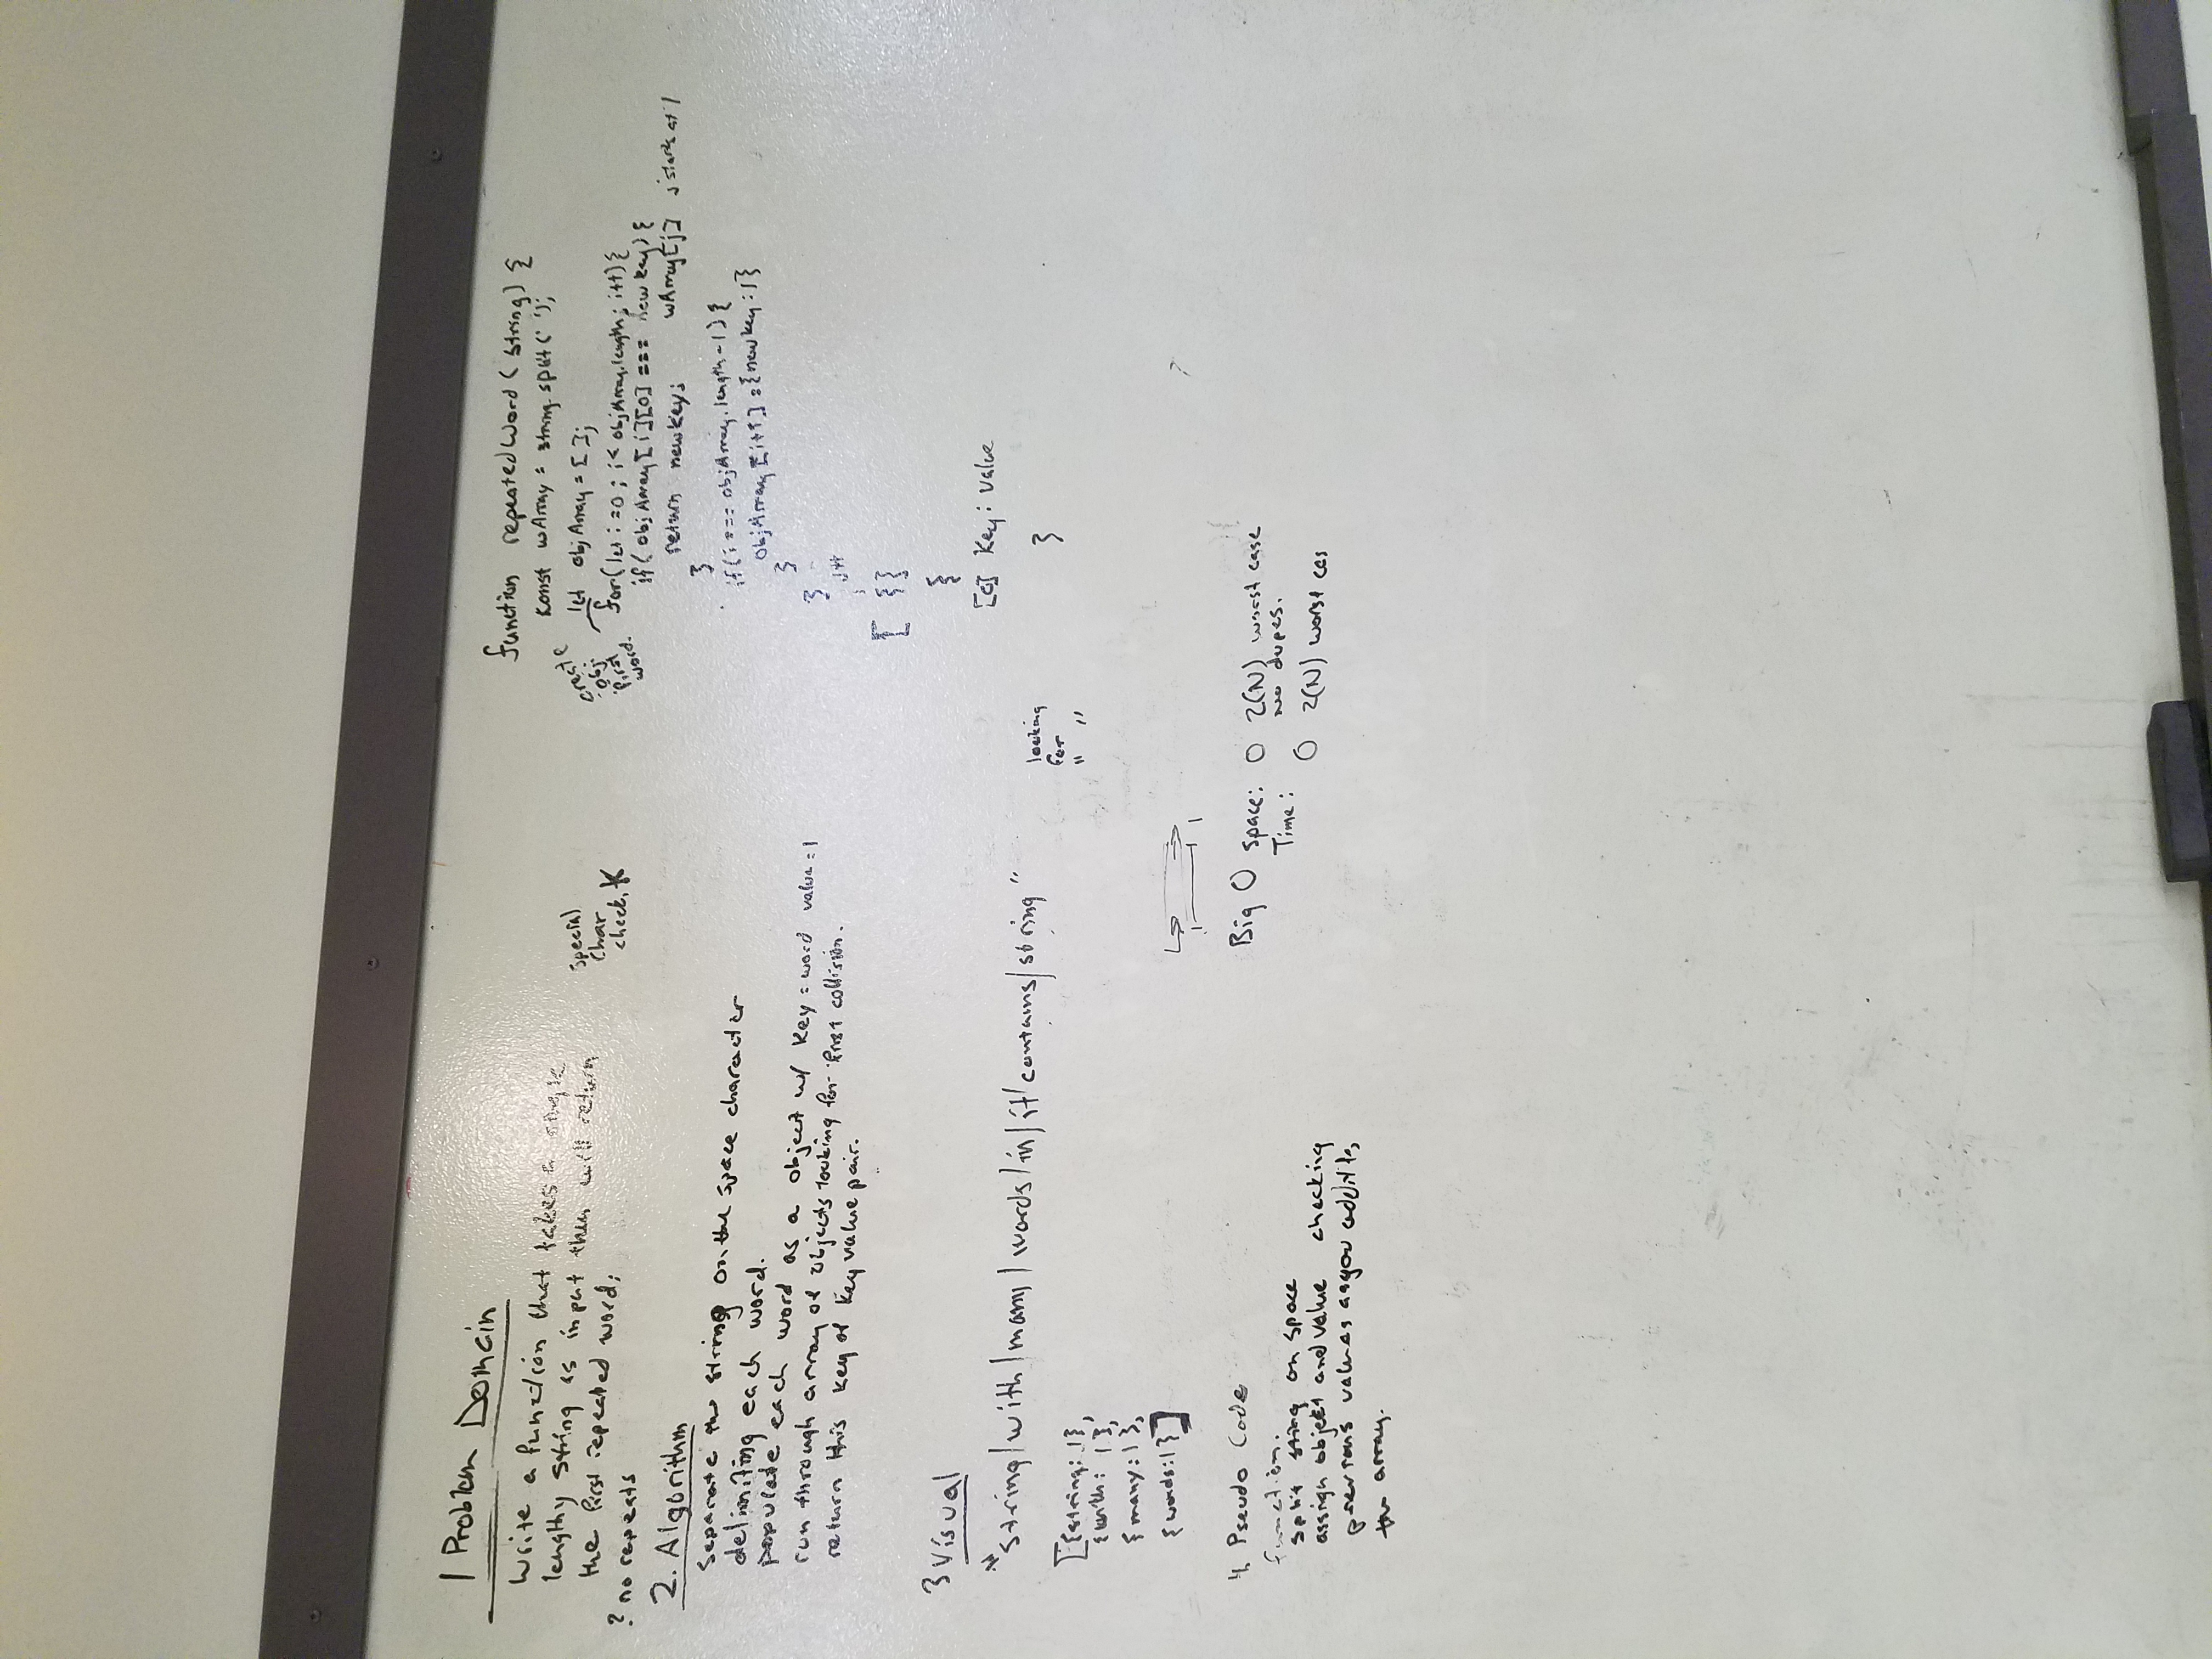 1 Problem Domain
Write a function that takes a single
lengthy string as input then will return
the first repeated word;
? no repeats
special
char
check, *
2. Algorithm
Separate the string on the space character
delimiting each word.
populate each word as a object w/ Key = word value = 1
run through array of objects looking for first collision.
return this key of key value pair.
3 Visual
"string/with/many/words/in/it/contains/string"
[{string: 1},
{with: 1},
{many: 1},
{words: 1}]
4. Pseudo Code
function.
split sting on space
assign object and value checking
previous values as you add it to,
the array.
function repeatedWord (string) {
konst wArray = string.split(' ');
create
obj.
first
word.
let objArray = [];
for(let i=0; i< objArray.length; i++){
if( objArray[i][0] === newkey) {
return newkey; wArray[j] j starts at 1
}
if(i === objArray.length-1) {
objArray[i+1] = {newkey:1}
}
}
j++
[ {}]
{
[0] Key: value
}
looking
for
" "
Big O Space: O 2(N) worst case
no dupes.
Time:
O 2(N) worst cas